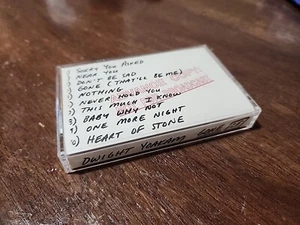 1) SORRY YOU ASKED
2) NEAR YOU
3) DON'T BE SAD
4) GONE (THAT'LL BE ME)
5) NOTHING
6) NEVER HOLD YOU
7) THIS MUCH I KNOW
8) BABY WHY NOT
9) ONE MORE NIGHT
0) HEART OF STONE
ADVANCE COPY
DWIGHT YOAKAM GONE